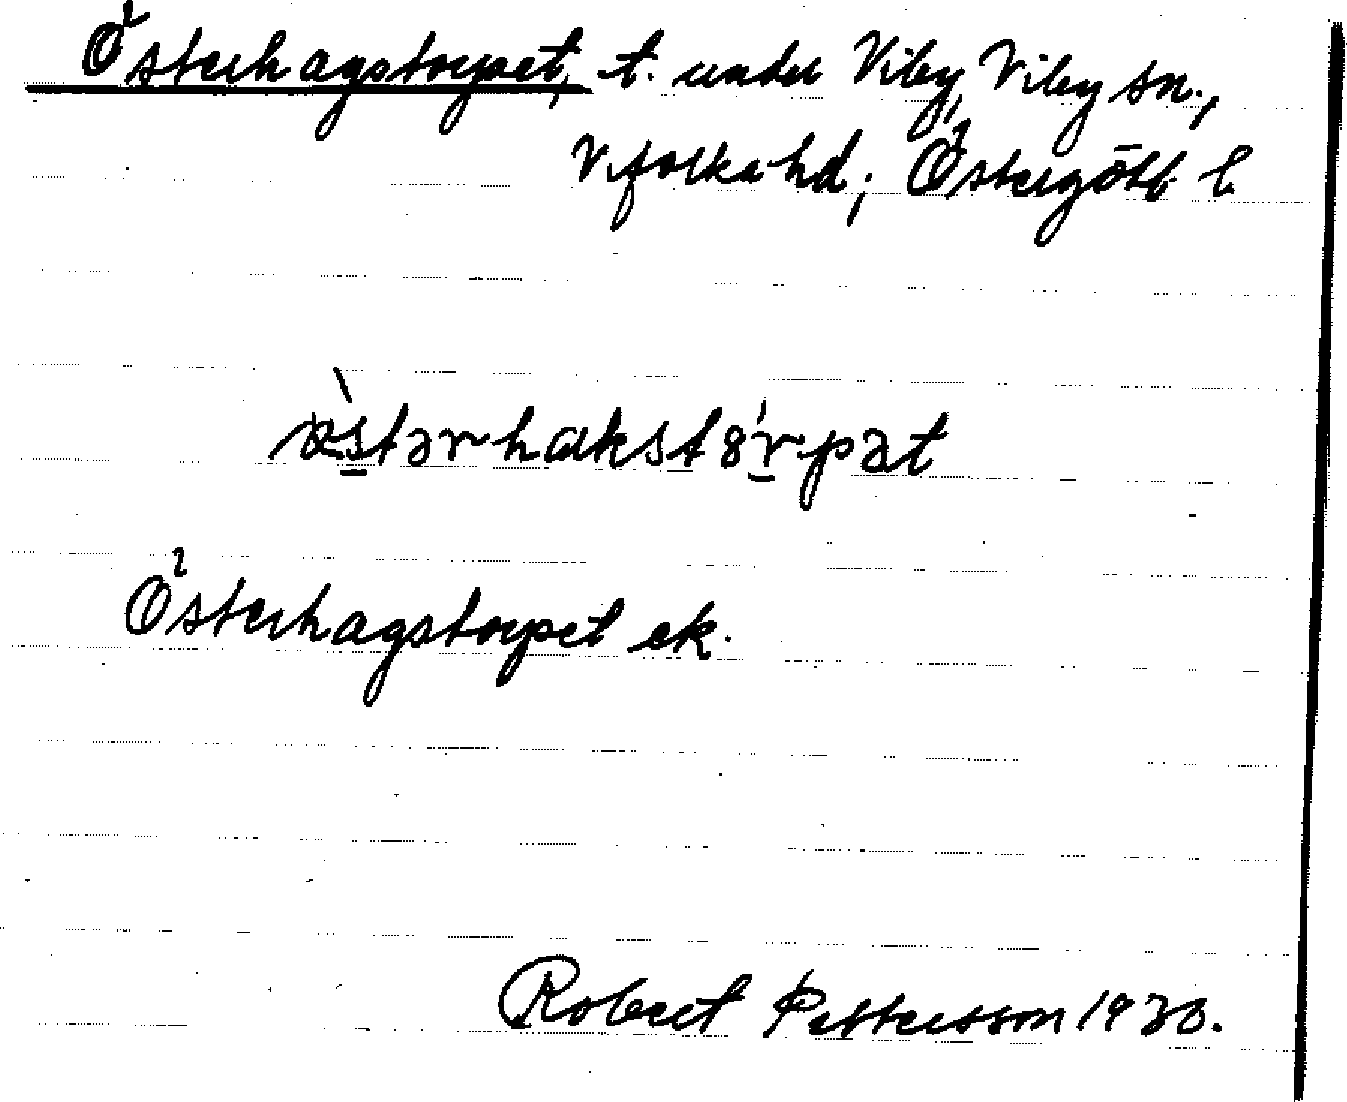 Österhagstorpet, t. under Viby, Viby sn.,
Vifolka hd; Östergötl l.
östərhakstórpət
Österhagstorpet ek.
Robert Pettersson 1930.